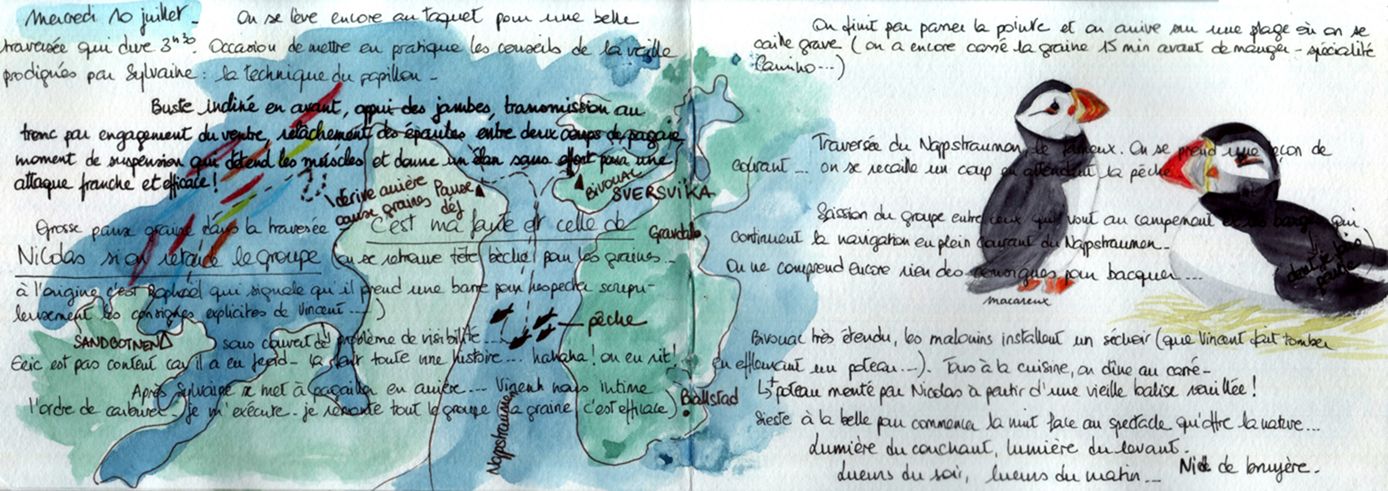 Mercredi 10 juillet - On se lève encore au taquet pour une belle
traversée qui dure 3h30. Occasion de mettre en pratique les conseils de la veille
prodigués par Sylvaine : la technique du papillon -
Buste incliné en avant, appui des jambes, transmission au
tronc par engagement du ventre, relâchement des épaules entre deux coups de pagaie,
moment de suspension qui détend les muscles et donne un élan sans effort pour une
attaque franche et efficace !
dérive arrière
cause graines
Pause
déj
BIVOUAC
SVERSVIKA
Grosse pause graine dans la traversée - c'est ma faute et celle de
Nicolas si on retarde le groupe (on se retrouve tête bêche pour les graines...
à l'origine c'est Raphaël qui signale qu'il prend une barre pour respecter scrupu-
leusement les consignes explicites de Vincent....)
Gravdal
SANDBOTNEN
sous couvert de problème de visibilité....
pêche
Eric est pas content car il a eu froid - ça fait toute une histoire.... hahaha ! on en rit !
Après Sylvaine se met à pagailler en arrière.... Vincent nous intime
l'ordre de carburer, je m'exécute - je remonte tout le groupe (la graine, c'est efficace)
Nappstraumen
Ballstad
On finit par passer la pointe et on arrive sur une plage où on se
caille grave (on a encore cassé la graine 15 min avant de manger - spécialité
Camino...)
Traversée du Nappstraumen, le fameux. On se prend une leçon de
courant... on se recaille un coup en attendant la pêche
Scission du groupe entre ceux qui vont au campement et qui
continuent la navigation en plein courant du Nappstraumen...
On ne comprend encore rien des consignes pour bacquer....
macareux
Bivouac très étendu, les malouins installent un séchoir (que Vincent fait tomber
en effleurant un poteau....). Tous à la cuisine, on dîne au carré -
poteau monté par Nicolas à partir d'une vieille balise rouillée !
Sieste à la belle pour commencer la nuit face au spectacle qu'offre la nature...
Lumière du couchant, lumière du levant.
Lueurs du soir, lueurs du matin... Nid de bruyère.